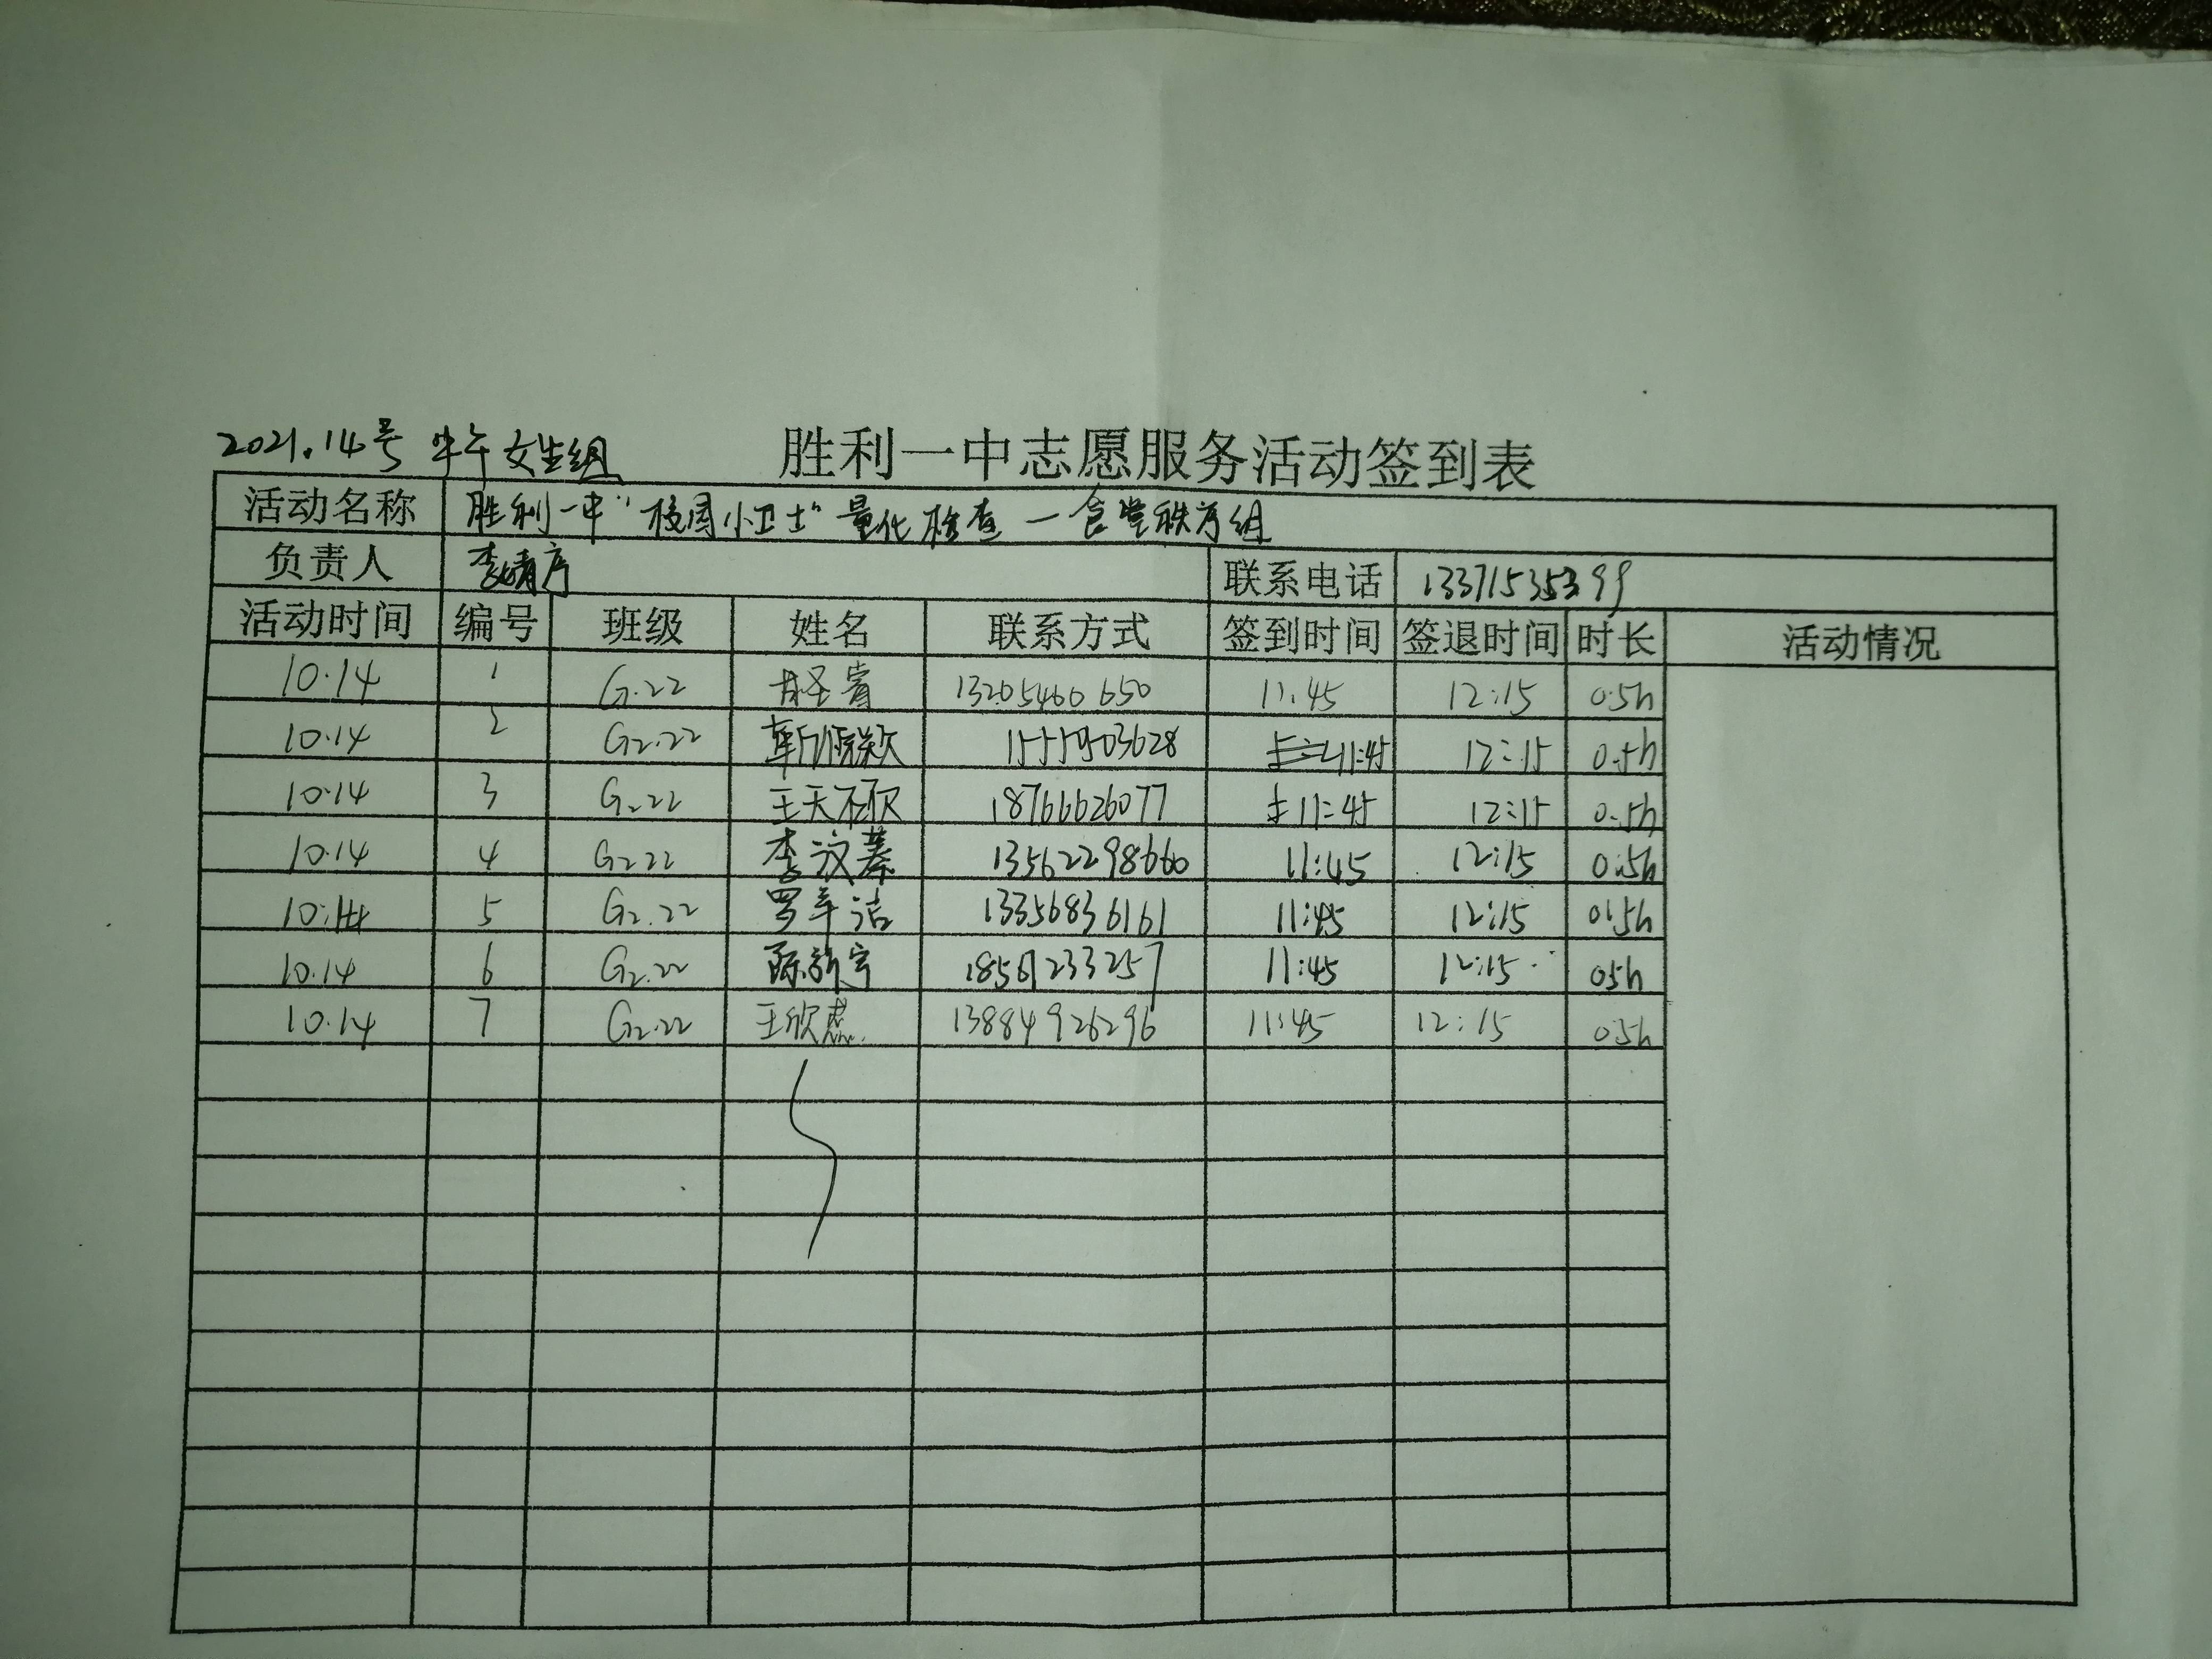 2021.14号 中午 女生组
胜利一中志愿服务活动签到表
活动名称 胜利一中"校园小卫士"量化检查一食堂秩序组
负责人 李婧序 联系电话 13371535399
活动时间 编号 班级 姓名 联系方式 签到时间 签退时间 时长 活动情况
10.14 1 G.22 13205460650 11:45 12:15 0.5h
10.14 2 G2.22 11:45 12:15 0.5h
10.14 3 G2.22 18766626077 11:45 12:15 0.5h
10.14 4 G2.22 李汶蓁 13562298660 11:45 12:15 0.5h
10.14 5 G2.22 罗辛洁 13356836161 11:45 12:15 0.5h
10.14 6 G2.22 陈新宇 18561233257 11:45 12:15 0.5h
10.14 7 G2.22 王欣 13884926296 11:45 12:15 0.5h